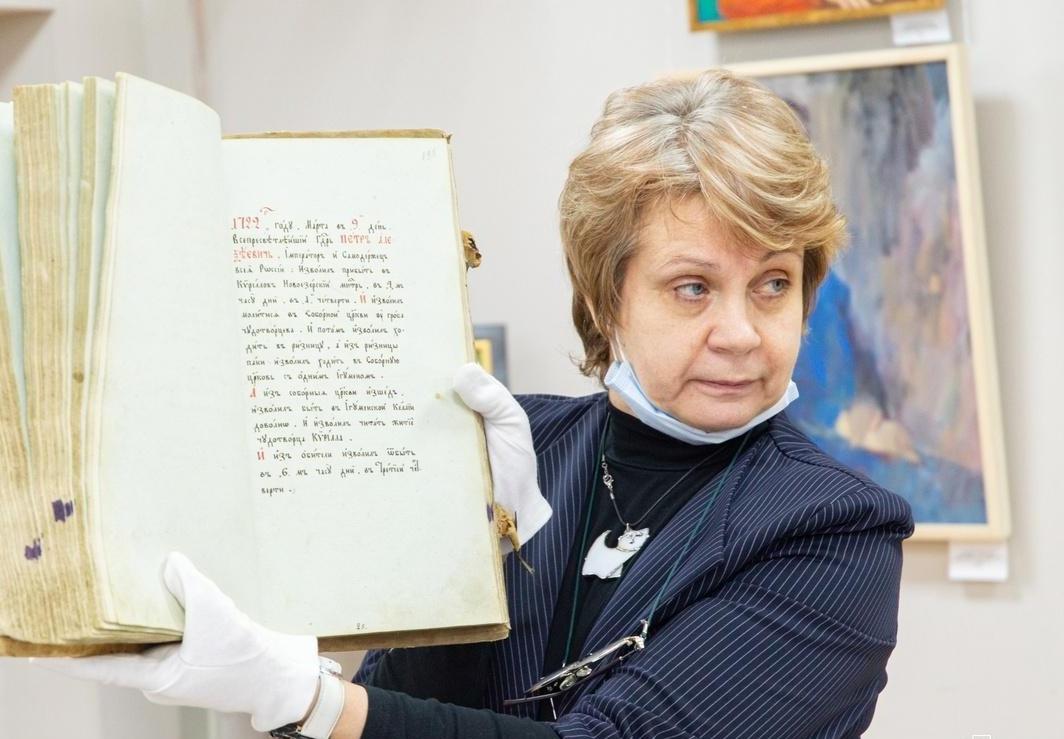 1722 году . Марта въ 9 день .
Всепресвѣтлѣйшій Гдрь ПЕТРЪ АЛЕ
ѮѢЕВИЧЬ . Імператоръ и Самодержецъ
всеѧ Россіи : Изволилъ прибыть въ
Кѷрилловъ Новоезерскій мнтрь . въ
часу дни . въ д҃ четверти . И изволилъ
молитисѧ въ Соборной цркви оу гроба
чудотворцева . И потомъ изволилъ хо-
дить въ ризницу , а изъ ризницы
паки изволилъ ходить въ Соборную
црковь съ однимъ Ігуменомъ .
А изъ соборныѧ цркви изшедъ .
изволилъ быть въ Ігуменской келліи
доволно . И изволилъ читать житіе
чудотворца КѶРІЛЛА .
И изъ обители изволилъ ѿбыть
въ 6 мъ часу дни . въ третіей чет
верти .